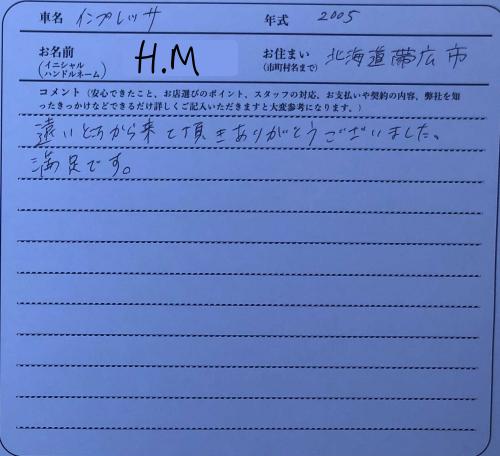 車名 インプレッサ 年式 2005
お名前 (イニシャル ハンドルネーム) H.M お住まい (市町村名まで) 北海道帯広市
コメント(安心できたこと、お店選びのポイント、スタッフの対応、お支払いや契約の内容、弊社を知
ったきっかけなどできるだけ詳しくご記入いただきますと大変参考になります。)
遠いとこから来て頂きありがとうございました。
満足です。